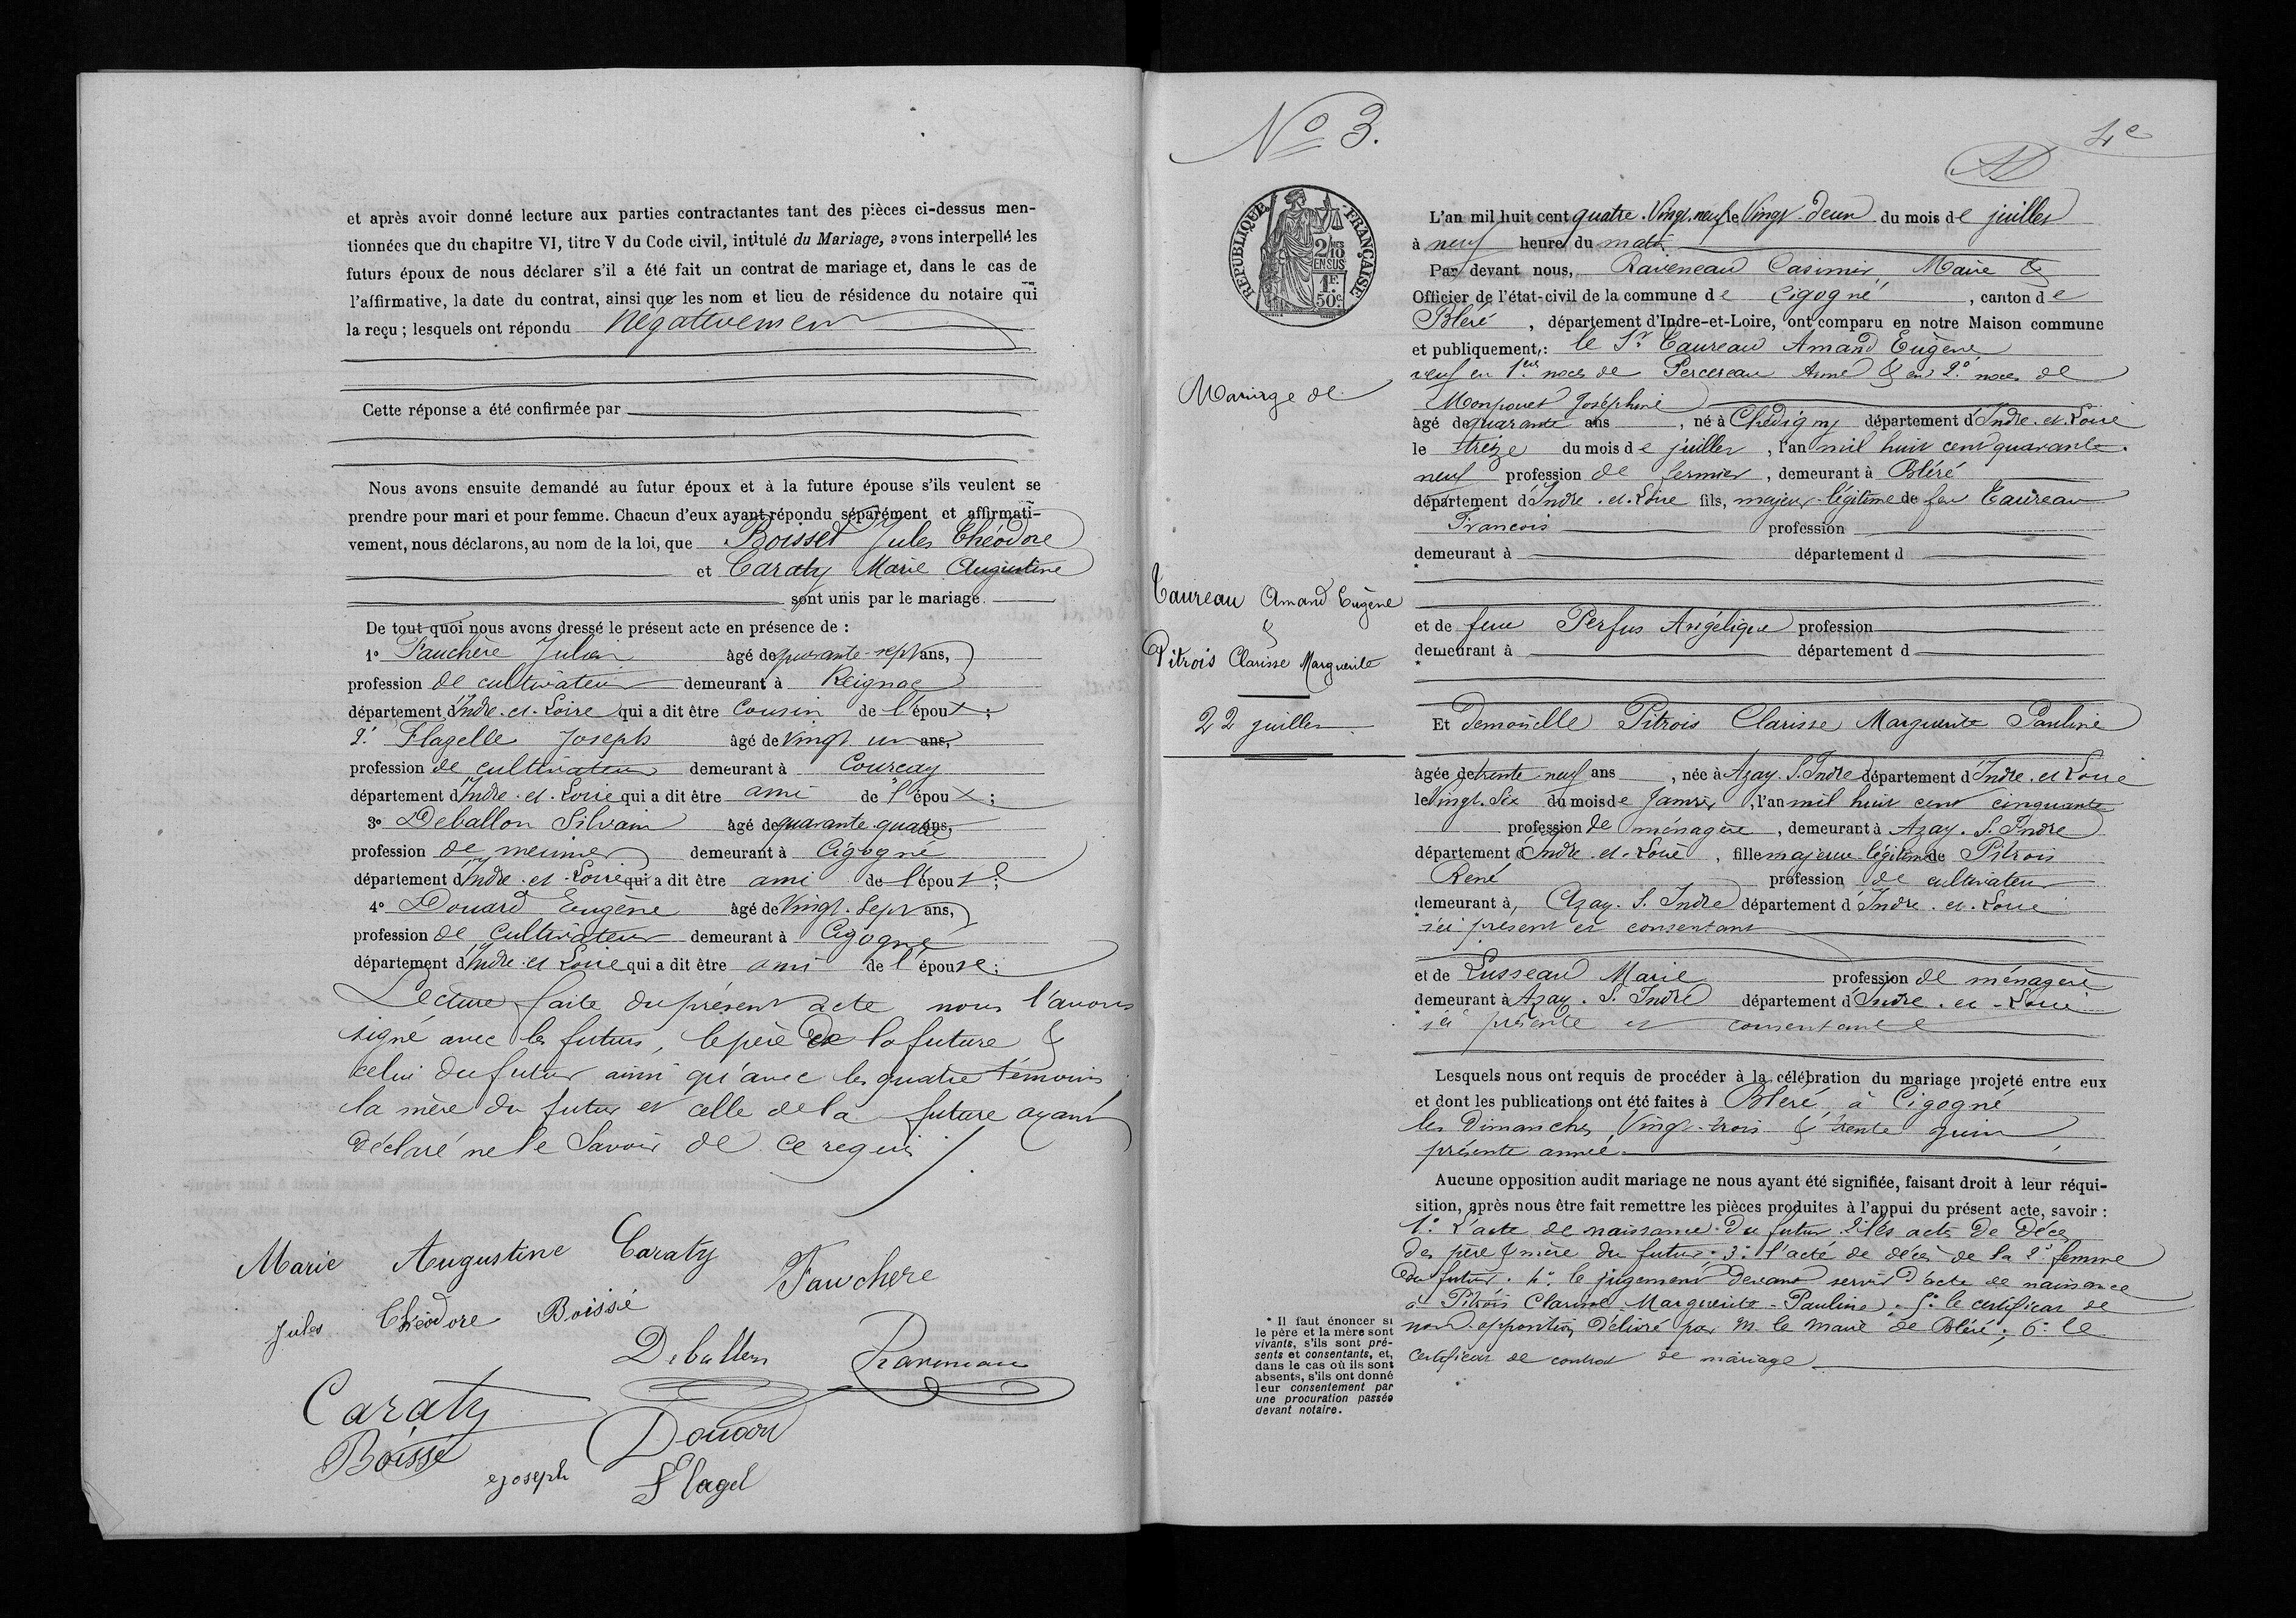 et après avoir donné lecture aux parties contractantes tant des pièces ci-dessus men-
tionnées que du chapitre VI, titre V du Code civil, intitulé du Mariage, avons interpellé les
futurs époux de nous déclarer s'il a été fait un contrat de mariage et, dans le cas de
l'affirmative, la date du contrat, ainsi que les nom et lieu de résidence du notaire qui
la reçu ; lesquels ont répondu Négativement
Cette réponse a été confirmée par
Nous avons ensuite demandé au futur époux et à la future épouse s'ils veulent se
prendre pour mari et pour femme. Chacun d'eux ayant répondu séparément et affirmati-
vement, nous déclarons, au nom de la loi, que Boisset Jules Théodore
et Caraty Marie Augustine
sont unis par le mariage.
De tout quoi nous avons dressé le présent acte en présence de :
1° Fauchère Julien âgé de quarante-sept ans,
profession de cultivateur demeurant à Reignac
département d'Indre-et-Loire qui a dit être cousin de l'époux ;
2° Flagelle Joseph âgé de vingt un ans,
profession de cultivateur demeurant à Courçay
département d'Indre-et-Loire qui a dit être ami de l'époux ;
3° Deballon Silvain âgé de quarante quatre ans,
profession de meunier demeurant à Cigogné
département d'Indre-et-Loire qui a dit être ami de l'épouse ;
4° Douard Eugène âgé de vingt-sept ans,
profession de cultivateur demeurant à Cigogné
département d'Indre-et-Loire qui a dit être ami de l'épouse ;
Lecture faite du présent acte nous l'avons
signé avec les futurs, le père de la future &
celui du futur ainsi qu'avec les quatre témoins
la mère du futur et celle de la future ayant
déclaré ne le savoir de ce requis
Marie Augustine Caraty
Fauchere
Jules Théodore Boissé
Deballon
Raveneau
Caraty
Douard
Boissé
Joseph
Flagel
N° 3.
4e
RÉPUBLIQUE FRANÇAISE
2/10 EN SUS
1F. 50c.
Mariage de
Taureau Amand Eugène
&
Pitrois Clarisse Marguerite
22 juillet
L'an mil huit cent quatre-vingt-neuf le vingt-deux du mois de juillet
à neuf heure du matin
Par devant nous, Raveneau Casimir, Maire &
Officier de l'état-civil de la commune de Cigogné, canton de
Bléré, département d'Indre-et-Loire, ont comparu en notre Maison commune
et publiquement : le Sr Taureau Amand Eugène
veuf en 1res noces de Percereau Anne & en 2° noces de
Monpouet Joséphine
âgé de quarante ans, né à Chédigny département d'Indre-et-Loire
le treize du mois de juillet, l'an mil huit cent quarante-
neuf profession de fermier, demeurant à Bléré
département d'Indre-et-Loire fils, majeur légitime de feu Taureau
François profession
demeurant à département d
*
et de feue Perfus Angélique profession
demeurant à département d
*
Et Demoiselle Pitrois Clarisse Marguerite Pauline
âgée de trente neuf ans, née à Azay-S. Indre département d'Indre-et-Loire
le vingt-six du mois de Janvier, l'an mil huit cent cinquante
profession de ménagère, demeurant à Azay-S. Indre
département d'Indre-et-Loire, fille majeure légitime de Pitrois
René profession de cultivateur
demeurant à, Azay-S. Indre département d'Indre-et-Loire
* ici présent et consentant
et de Lusseau Marie profession de ménagère
demeurant à Azay-S. Indre département d'Indre-et-Loire
* ici présente et consentante
Lesquels nous ont requis de procéder à la célébration du mariage projeté entre eux
et dont les publications ont été faites à Bléré, à Cigogné
les Dimanches vingt-trois & trente juin
présente année.
Aucune opposition audit mariage ne nous ayant été signifiée, faisant droit à leur réqui-
sition, après nous être fait remettre les pièces produites à l'appui du présent acte, savoir :
1° L'acte de naissance du futur. 2° les actes de décès
des père & mère du futur. 3° l'acte de décès de la 2e femme
du futur. 4° le jugement devant servir d'acte de naissance
à Pitrois Clarisse-Marguerite-Pauline. 5° le certificat de
non opposition délivré par M. le Maire de Bléré ; 6° le
certificat de contrat de mariage
* Il faut énoncer si
le père et la mère sont
vivants, s'ils sont pré-
sents et consentants, et,
dans le cas où ils sont
absents, s'ils ont donné
leur consentement par
une procuration passée
devant notaire.